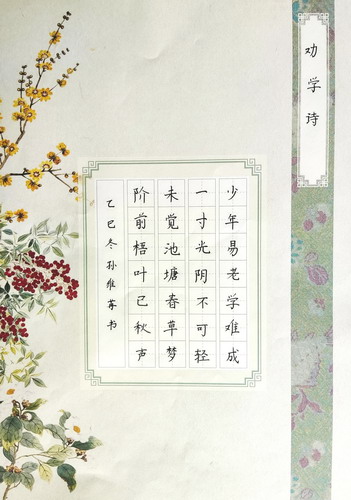 劝学诗
少年易老学难成
一寸光阴不可轻
未觉池塘春草梦
阶前梧叶已秋声
乙巳冬孙维苒书